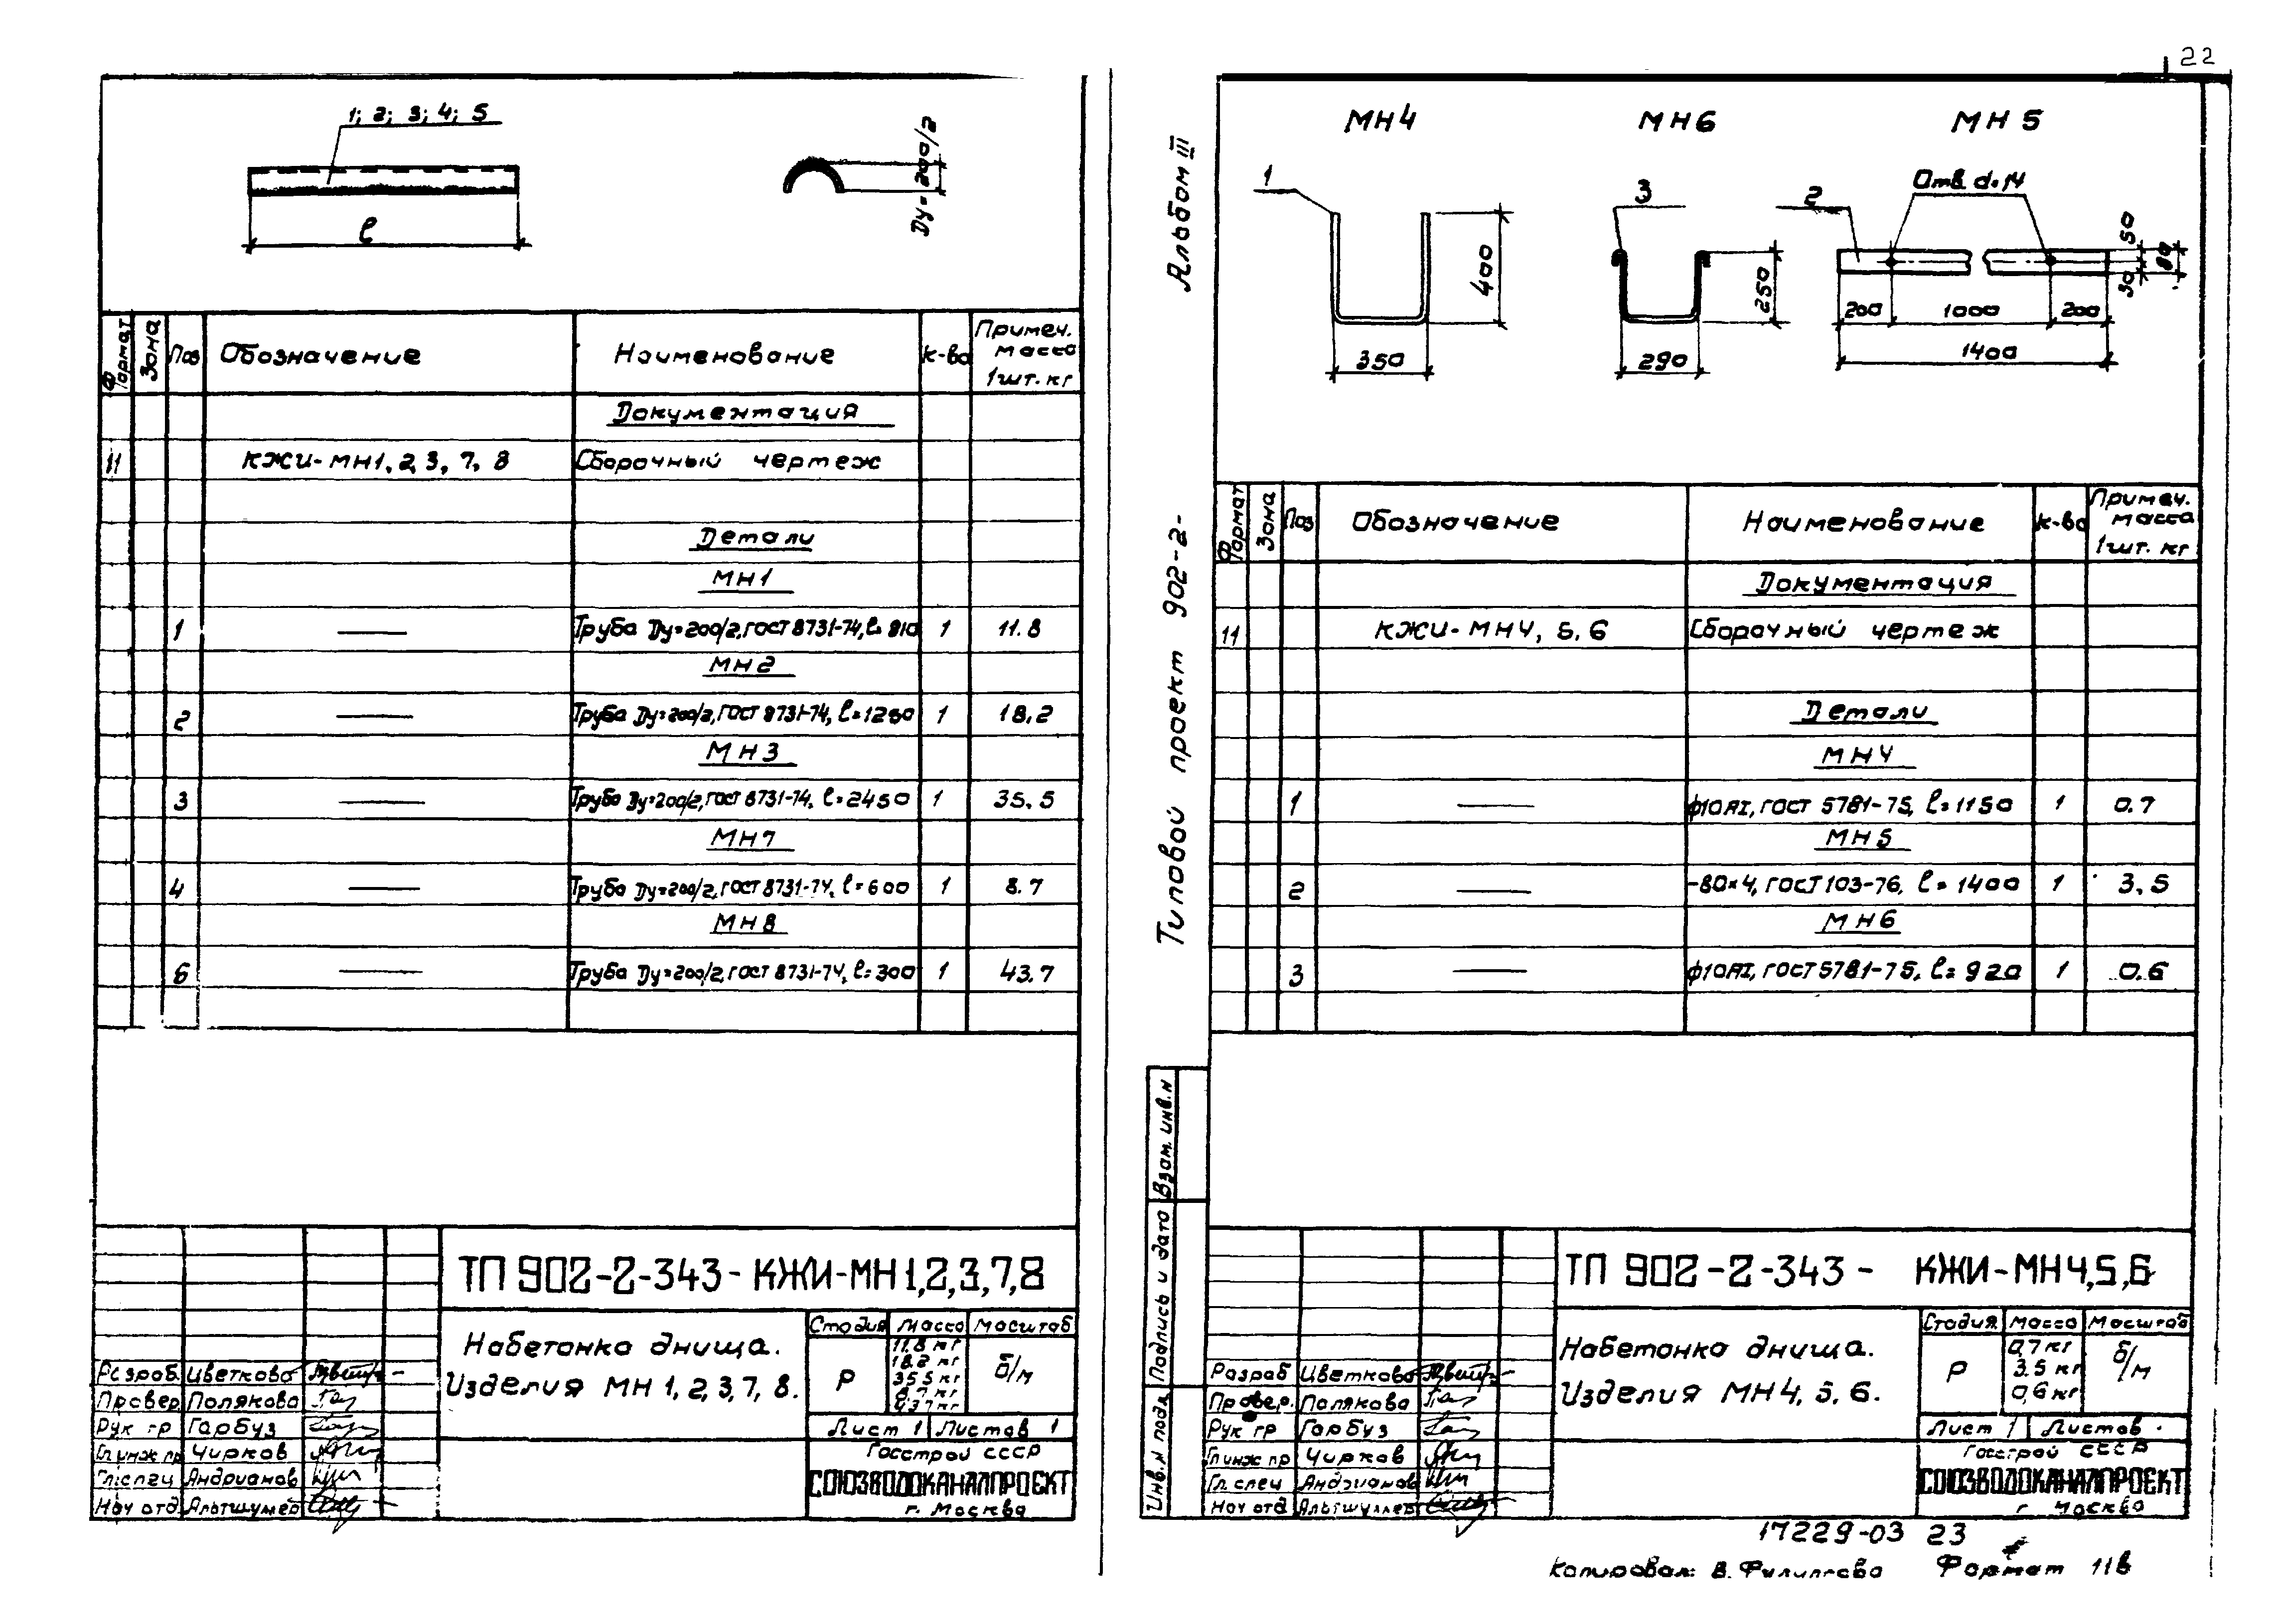 22
1; 2; 3; 4; 5
l
Dу=200/2
Формат
Зона
Поз
Обозначение
Наименование
к-во
Примеч. масса 1шт. кг
Документация
11 КЖИ-МН1, 2, 3, 7, 8 Сборочный чертеж
Детали
МН1
1 — Труба Dу=200/2, ГОСТ 8731-74, l=810 1 11.8
МН2
2 — Труба Dу=200/2, ГОСТ 8731-74, l=1250 1 18.2
МН3
3 — Труба Dу=200/2, ГОСТ 8731-74, l=2450 1 35.5
МН7
4 — Труба Dу=200/2, ГОСТ 8731-74, l=600 1 8.7
МН8
6 — Труба Dу=200/2, ГОСТ 8731-74, l=300 1 43.7
ТП 902-2-343-КЖИ-МН1,2,3,7,8
Набетонка днища.
Изделия МН 1, 2, 3, 7, 8.
Стадия Масса Масштаб
Р
11.8 кг
18.2 кг
35.5 кг
8.7 кг
43.7 кг
б/м
Лист 1 Листов 1
Госстрой СССР
СОЮЗВОДОКАНАЛПРОЕКТ
г. Москва
Разраб. Цветкова
Провер. Полякова
Рук гр Гарбуз
Гл инж пр Чирков
Гл спец Андрианов
Нач отд Альтшулер
Альбом III
Типовой проект 902-2-
Взам. инв. н
Подпись и дата
Инв. н подл.
МН4
1
400
350
МН6
3
250
290
МН 5
2
Отв. d=14
50
30
80
200 1000 200
1400
Формат
Зона
Поз
Обозначение
Наименование
к-во
Примеч. масса 1шт. кг
Документация
11 КЖИ-МН4, 5, 6 Сборочный чертеж
Детали
МН4
1 — ϕ10АI, ГОСТ 5781-75, l=1150 1 0.7
МН5
2 — -80×4, ГОСТ 103-76, l=1400 1 3,5
МН6
3 — ϕ10АI, ГОСТ 5781-75, l=920 1 0.6
ТП 902-2-343- КЖИ-МН4,5,6
Набетонка днища.
Изделия МН4, 5, 6.
Стадия Масса Масштаб
Р
0,7 кг
3.5 кг
0,6 кг
б/м
Лист 1 Листов
Госстрой СССР
СОЮЗВОДОКАНАЛПРОЕКТ
г. Москва
Разраб Цветкова
Провер. Полякова
Рук гр Гарбуз
Гл инж пр Чирков
Гл. спец Андрианов
Нач отд Альтшуллер
17229-03 23
Копировал: В. Филиппова Формат 11в